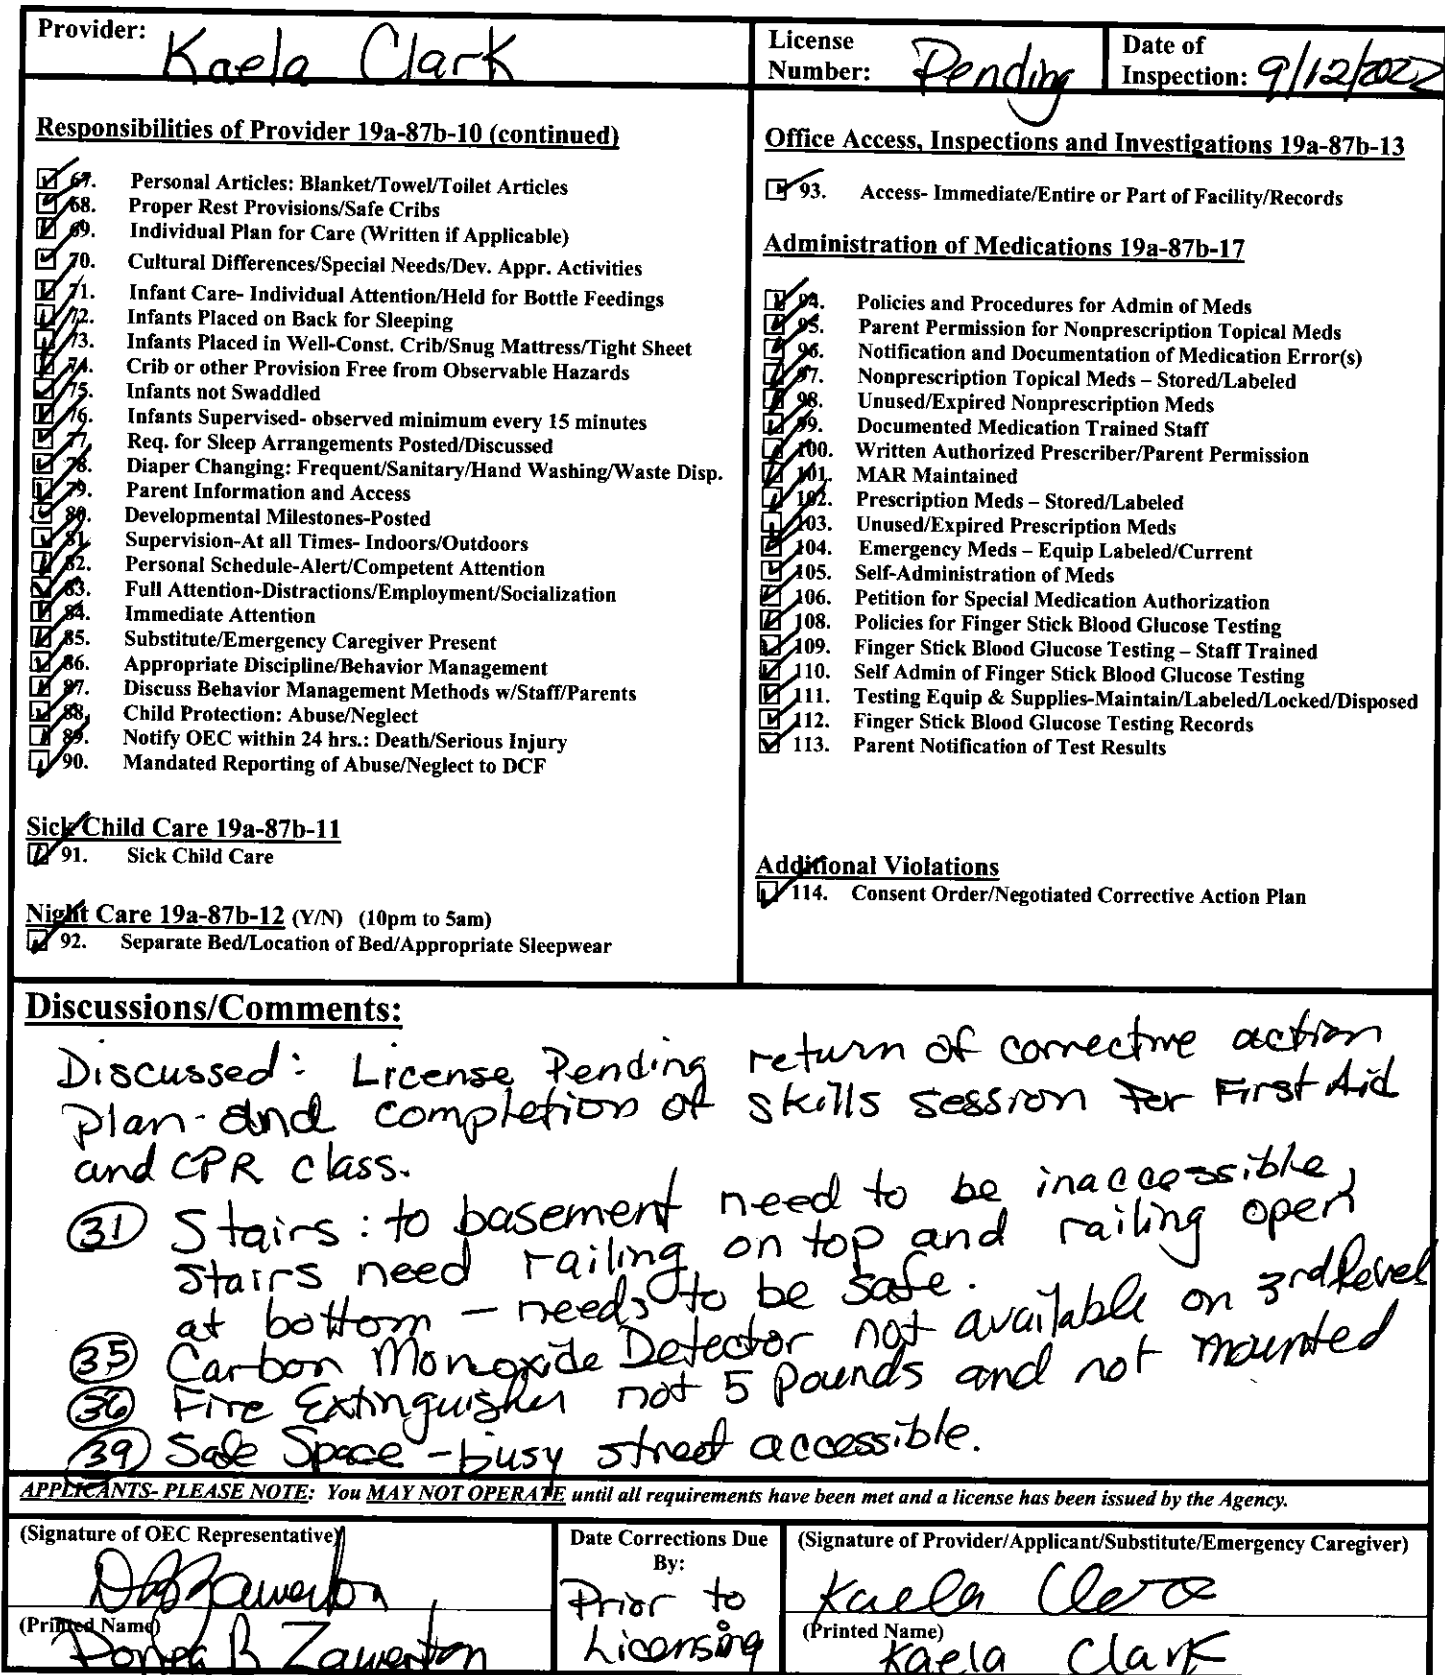 Provider: Kaela Clark
License Number: Pending
Date of Inspection: 9/12/2022
Responsibilities of Provider 19a-87b-10 (continued)
67. Personal Articles: Blanket/Towel/Toilet Articles
68. Proper Rest Provisions/Safe Cribs
69. Individual Plan for Care (Written if Applicable)
70. Cultural Differences/Special Needs/Dev. Appr. Activities
71. Infant Care- Individual Attention/Held for Bottle Feedings
72. Infants Placed on Back for Sleeping
73. Infants Placed in Well-Const. Crib/Snug Mattress/Tight Sheet
74. Crib or other Provision Free from Observable Hazards
75. Infants not Swaddled
76. Infants Supervised- observed minimum every 15 minutes
77. Req. for Sleep Arrangements Posted/Discussed
78. Diaper Changing: Frequent/Sanitary/Hand Washing/Waste Disp.
79. Parent Information and Access
80. Developmental Milestones-Posted
81. Supervision-At all Times- Indoors/Outdoors
82. Personal Schedule-Alert/Competent Attention
83. Full Attention-Distractions/Employment/Socialization
84. Immediate Attention
85. Substitute/Emergency Caregiver Present
86. Appropriate Discipline/Behavior Management
87. Discuss Behavior Management Methods w/Staff/Parents
88. Child Protection: Abuse/Neglect
89. Notify OEC within 24 hrs.: Death/Serious Injury
90. Mandated Reporting of Abuse/Neglect to DCF
Sick Child Care 19a-87b-11
91. Sick Child Care
Night Care 19a-87b-12 (Y/N) (10pm to 5am)
92. Separate Bed/Location of Bed/Appropriate Sleepwear
Office Access, Inspections and Investigations 19a-87b-13
93. Access- Immediate/Entire or Part of Facility/Records
Administration of Medications 19a-87b-17
94. Policies and Procedures for Admin of Meds
95. Parent Permission for Nonprescription Topical Meds
96. Notification and Documentation of Medication Error(s)
97. Nonprescription Topical Meds – Stored/Labeled
98. Unused/Expired Nonprescription Meds
99. Documented Medication Trained Staff
100. Written Authorized Prescriber/Parent Permission
101. MAR Maintained
102. Prescription Meds – Stored/Labeled
103. Unused/Expired Prescription Meds
104. Emergency Meds – Equip Labeled/Current
105. Self-Administration of Meds
106. Petition for Special Medication Authorization
108. Policies for Finger Stick Blood Glucose Testing
109. Finger Stick Blood Glucose Testing – Staff Trained
110. Self Admin of Finger Stick Blood Glucose Testing
111. Testing Equip & Supplies-Maintain/Labeled/Locked/Disposed
112. Finger Stick Blood Glucose Testing Records
113. Parent Notification of Test Results
Additional Violations
114. Consent Order/Negotiated Corrective Action Plan
Discussions/Comments:
Discussed: License Pending return of corrective action
plan-and completion of skills session for First Aid
and CPR class.
31 Stairs: to basement need to be inaccessible,
stairs need railing on top and railing open
at bottom – needs to be safe.
35 Carbon Monoxide Detector not available on 3rd level
36 Fire Extinguisher not 5 pounds and not mounted
39 Safe Space - busy street accessible.
APPLICANTS- PLEASE NOTE: You MAY NOT OPERATE until all requirements have been met and a license has been issued by the Agency.
(Signature of OEC Representative)
(Printed Name)
Zawerton
Date Corrections Due
By:
Prior to
Licensing
(Signature of Provider/Applicant/Substitute/Emergency Caregiver)
Kaela
(Printed Name)
Kaela Clark